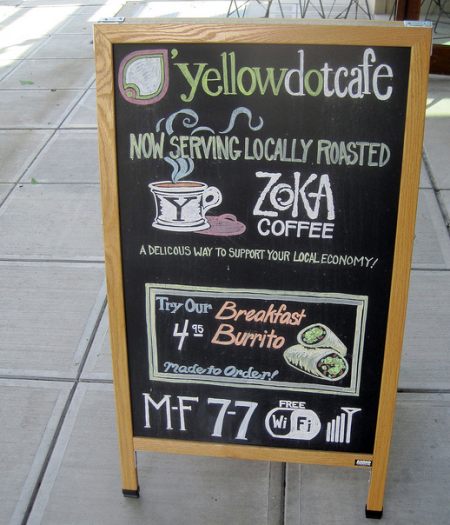 'yellowdotcafe
NOW SERVING LOCALLY ROASTED
Y
ZOKA
COFFEE
A DELICOUS WAY TO SUPPORT YOUR LOCAL ECONOMY!
Try Our Breakfast
4.95 Burrito
Made to Order!
M-F 7-7
FREE
Wi Fi